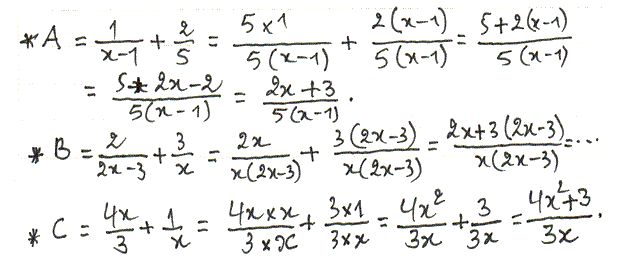 * A = 1/(x-1) + 2/5 = 5×1/5(x-1) + 2(x-1)/5(x-1) = 5+2(x-1)/5(x-1)
= 5+2x-2/5(x-1) = 2x+3/5(x-1).
* B = 2/(2x-3) + 3/x = 2x/x(2x-3) + 3(2x-3)/x(2x-3) = 2x+3(2x-3)/x(2x-3) = ...
* C = 4x/3 + 1/x = 4x×x/3×x + 3×1/3×x = 4x²/3x + 3/3x = 4x²+3/3x.